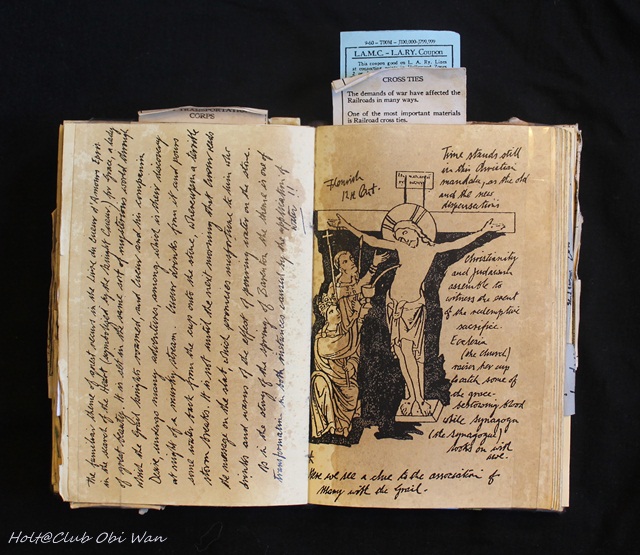 9-60 – T390M – 3700,000-3799,999
L.A.M.C. – L.A.RY. Coupon
This coupon good on L. A. Ry. Lines
CROSS TIES
The demands of war have affected the
Railroads in many ways.
One of the most important materials
is Railroad cross ties.
TRANSPORTATION
CORPS
The familiar theme of quest occurs in the Livre du Cueur d'Amours Epris
in the search of the Heart (symbolized by the Knight Cueur) for Grace, a lady
of great beauty. It is set in the same sort of mysterious world through
which the Grail Knights roamed, and Cueur and his companion
Desir, undergo many adventures, among which is their discovery
at night of a murky stream. Cueur drinks from it and pours
some water back from the cup onto the stone, whereupon a terrible
storm breaks. It is not until the next morning that Cueur reads
the message on the slab, which promises misfortune to him who
drinks and warns of the effect of pouring water on the stone.
As in the story of the spring of Barenton the theme is one of
transformation in both instances caused by the application of
Water!!
Flemish
12th Cent.
Time stands still
in this Christian
mandala, as the old
and the new
dispensations
Christianity
and Judaism
assemble to
witness the event
of the redemptive
sacrifice.
Ecclesia
(the church)
raises her cup
to catch some of
the grace-
bestowing blood
while Synagoga
(the synagogue)
looks on with
awe.
Here we see a clue to the association of
Mary with the Grail.
Holt@Club Obi Wan